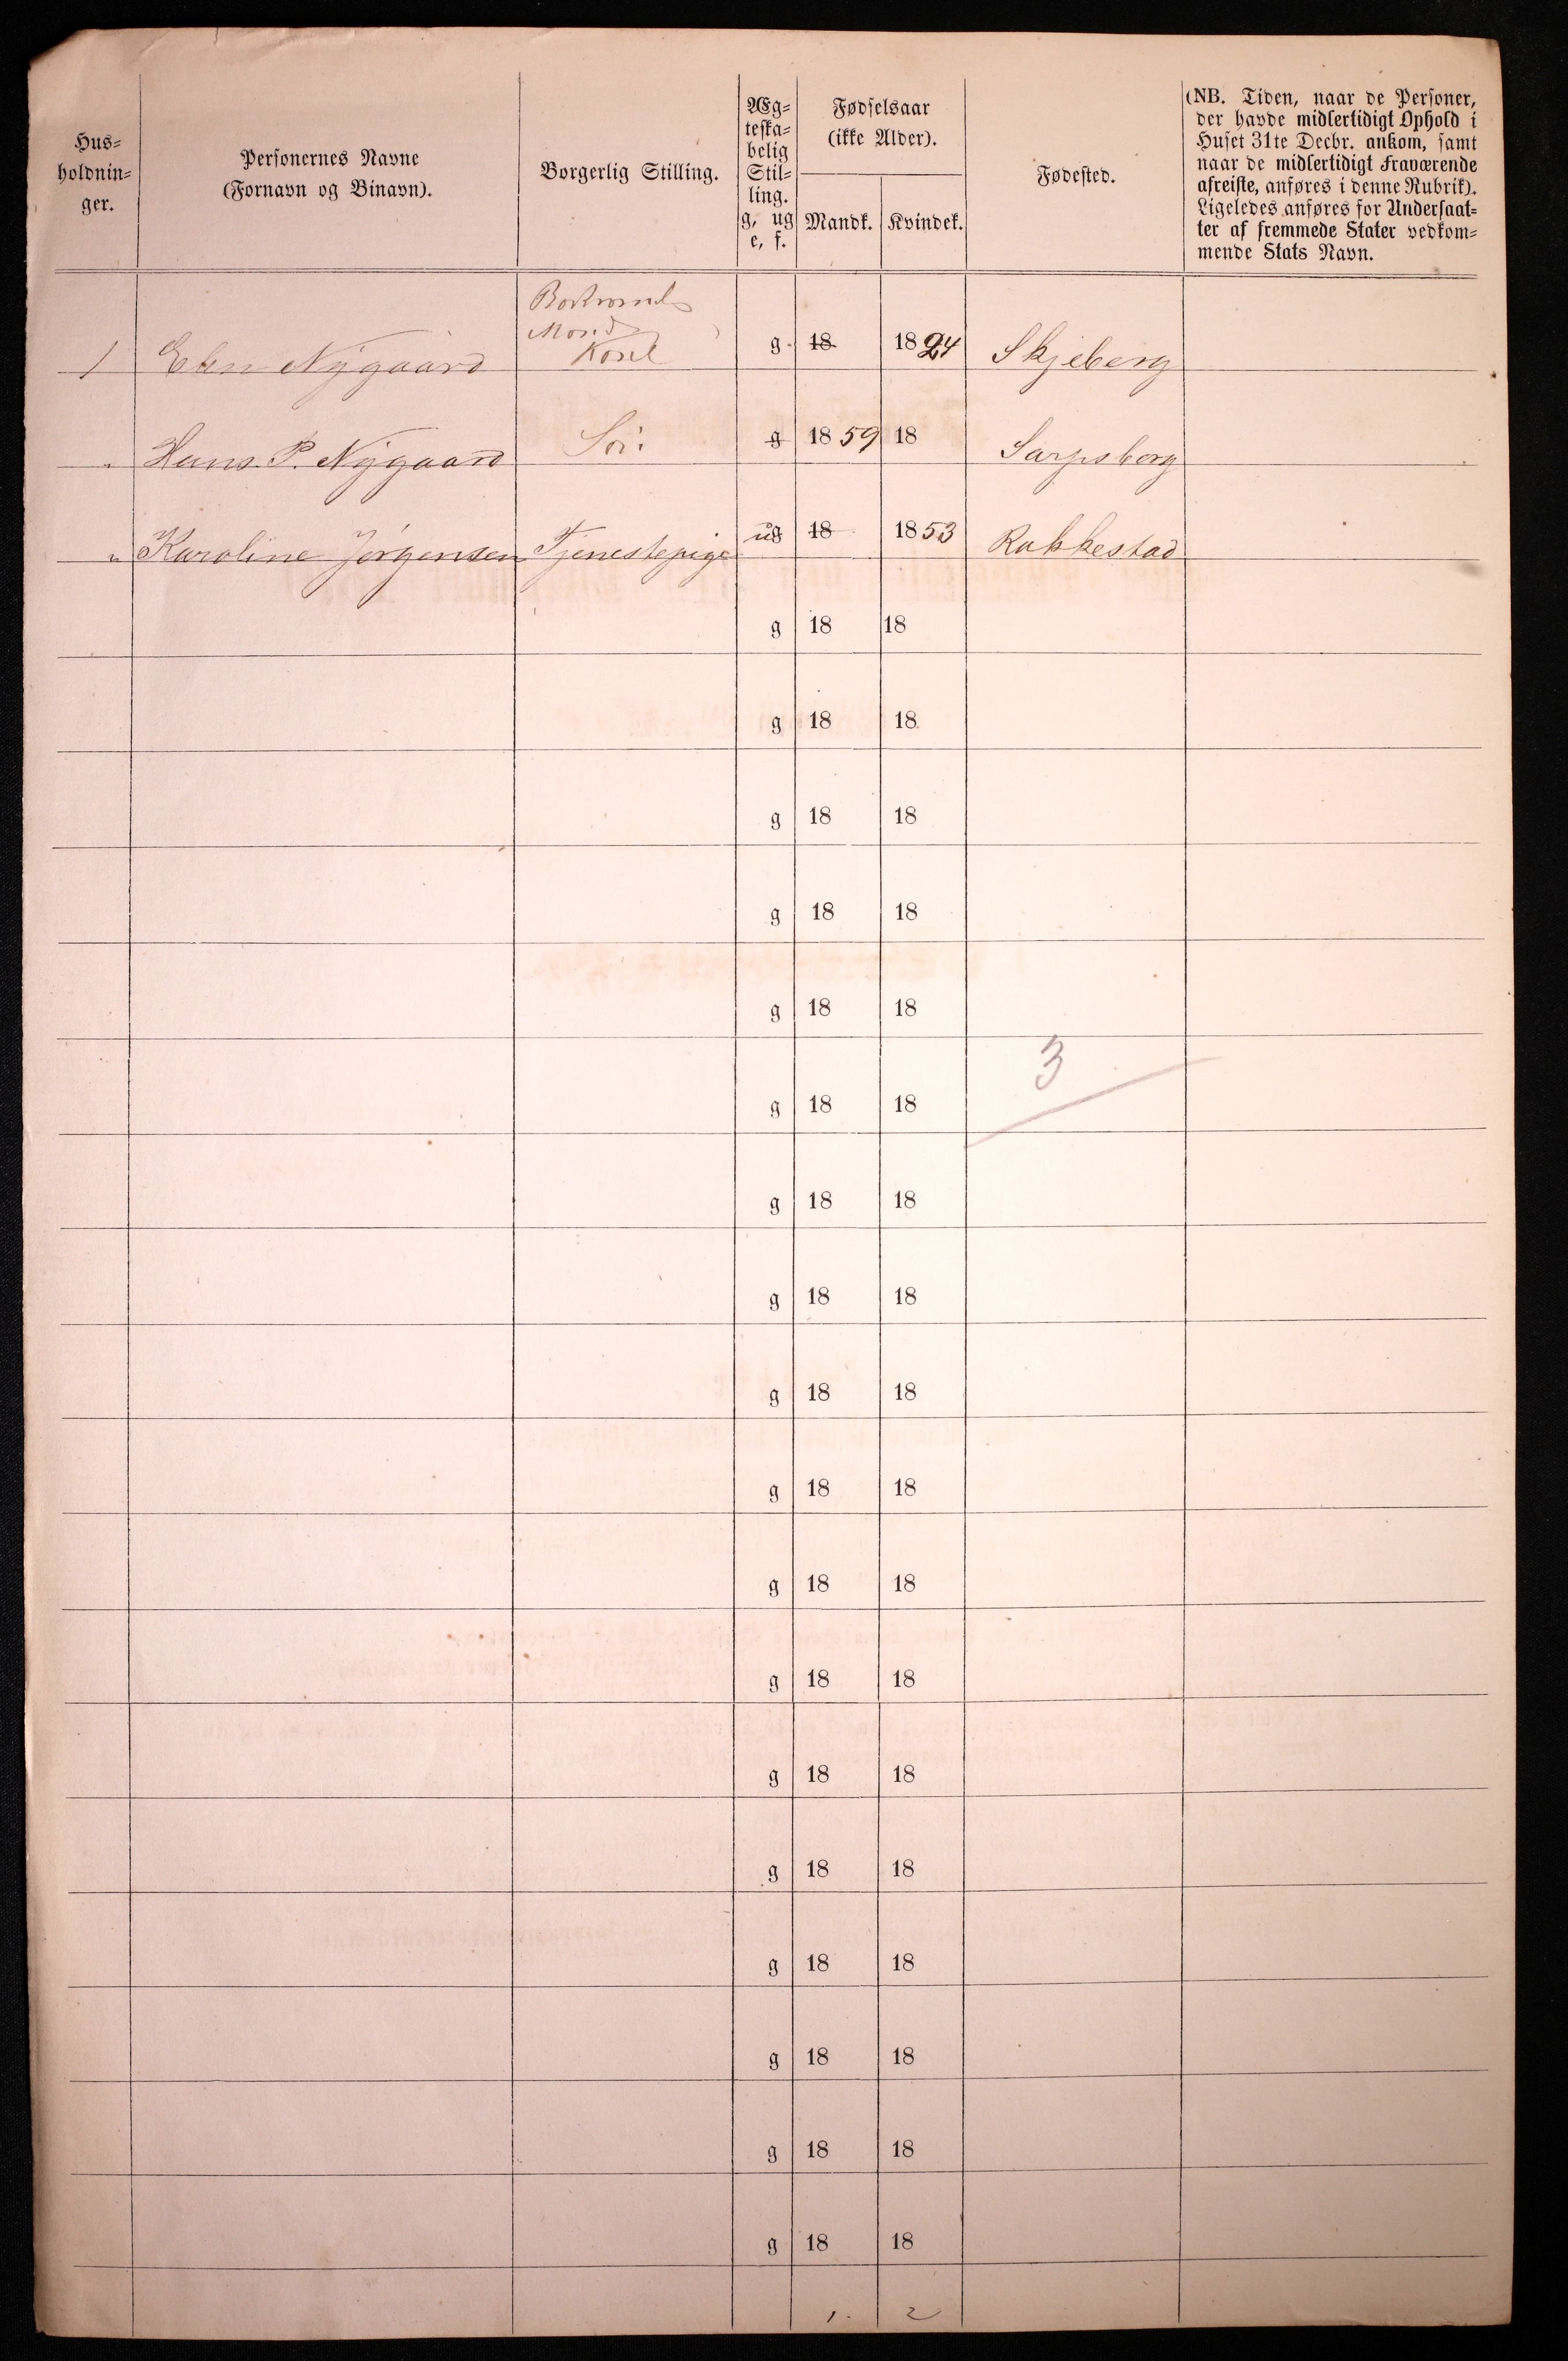 Hus-
holdnin-
ger.
Personernes Navne
(Fornavn og Binavn).
Borgerlig Stilling.
Æg-
teska-
belig
Stil-
ling.
g, ug
e, f.
Fødselsaar
(ikke Alder).
Mandk. Kvindek.
Fødested.
(NB. Tiden, naar de Personer,
der havde midlertidigt Ophold i
Huset 31te Decbr. ankom, samt
naar de midlertidigt Fraværende
afreiste, anføres i denne Rubrik).
Ligeledes anføres for Undersaat-
ter af fremmede Stater vedkom-
mende Stats Navn.
1 Nygaard Kone g 18 1824 Skjeberg
" Hans P. Nygaard Søn g 1859 18 Sarpsborg
" Karoline Jørgensen Tjenestepige ug 18 1853 Rakkestad
g 18 18
g 18 18
g 18 18
g 18 18
g 18 18
3
g 18 18
g 18 18
g 18 18
g 18 18
g 18 18
g 18 18
g 18 18
g 18 18
g 18 18
g 18 18
g 18 18
g 18 18
g 18 18
1 2